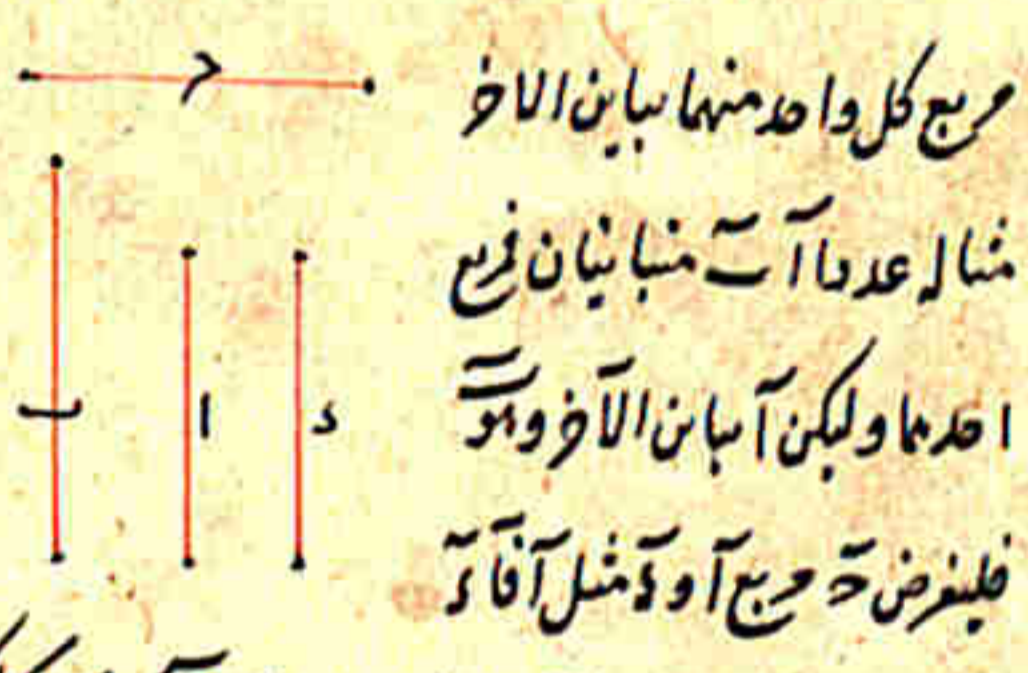 مربع كل واحد منهما يباين الاخر
مثاله عددا آ ب متباينان فمربع
احدهما وليكن آ يباين الآخر وهو ب
فليفرض ح مربع آ و د مثل آ فآ د
ح
ب
ا
د